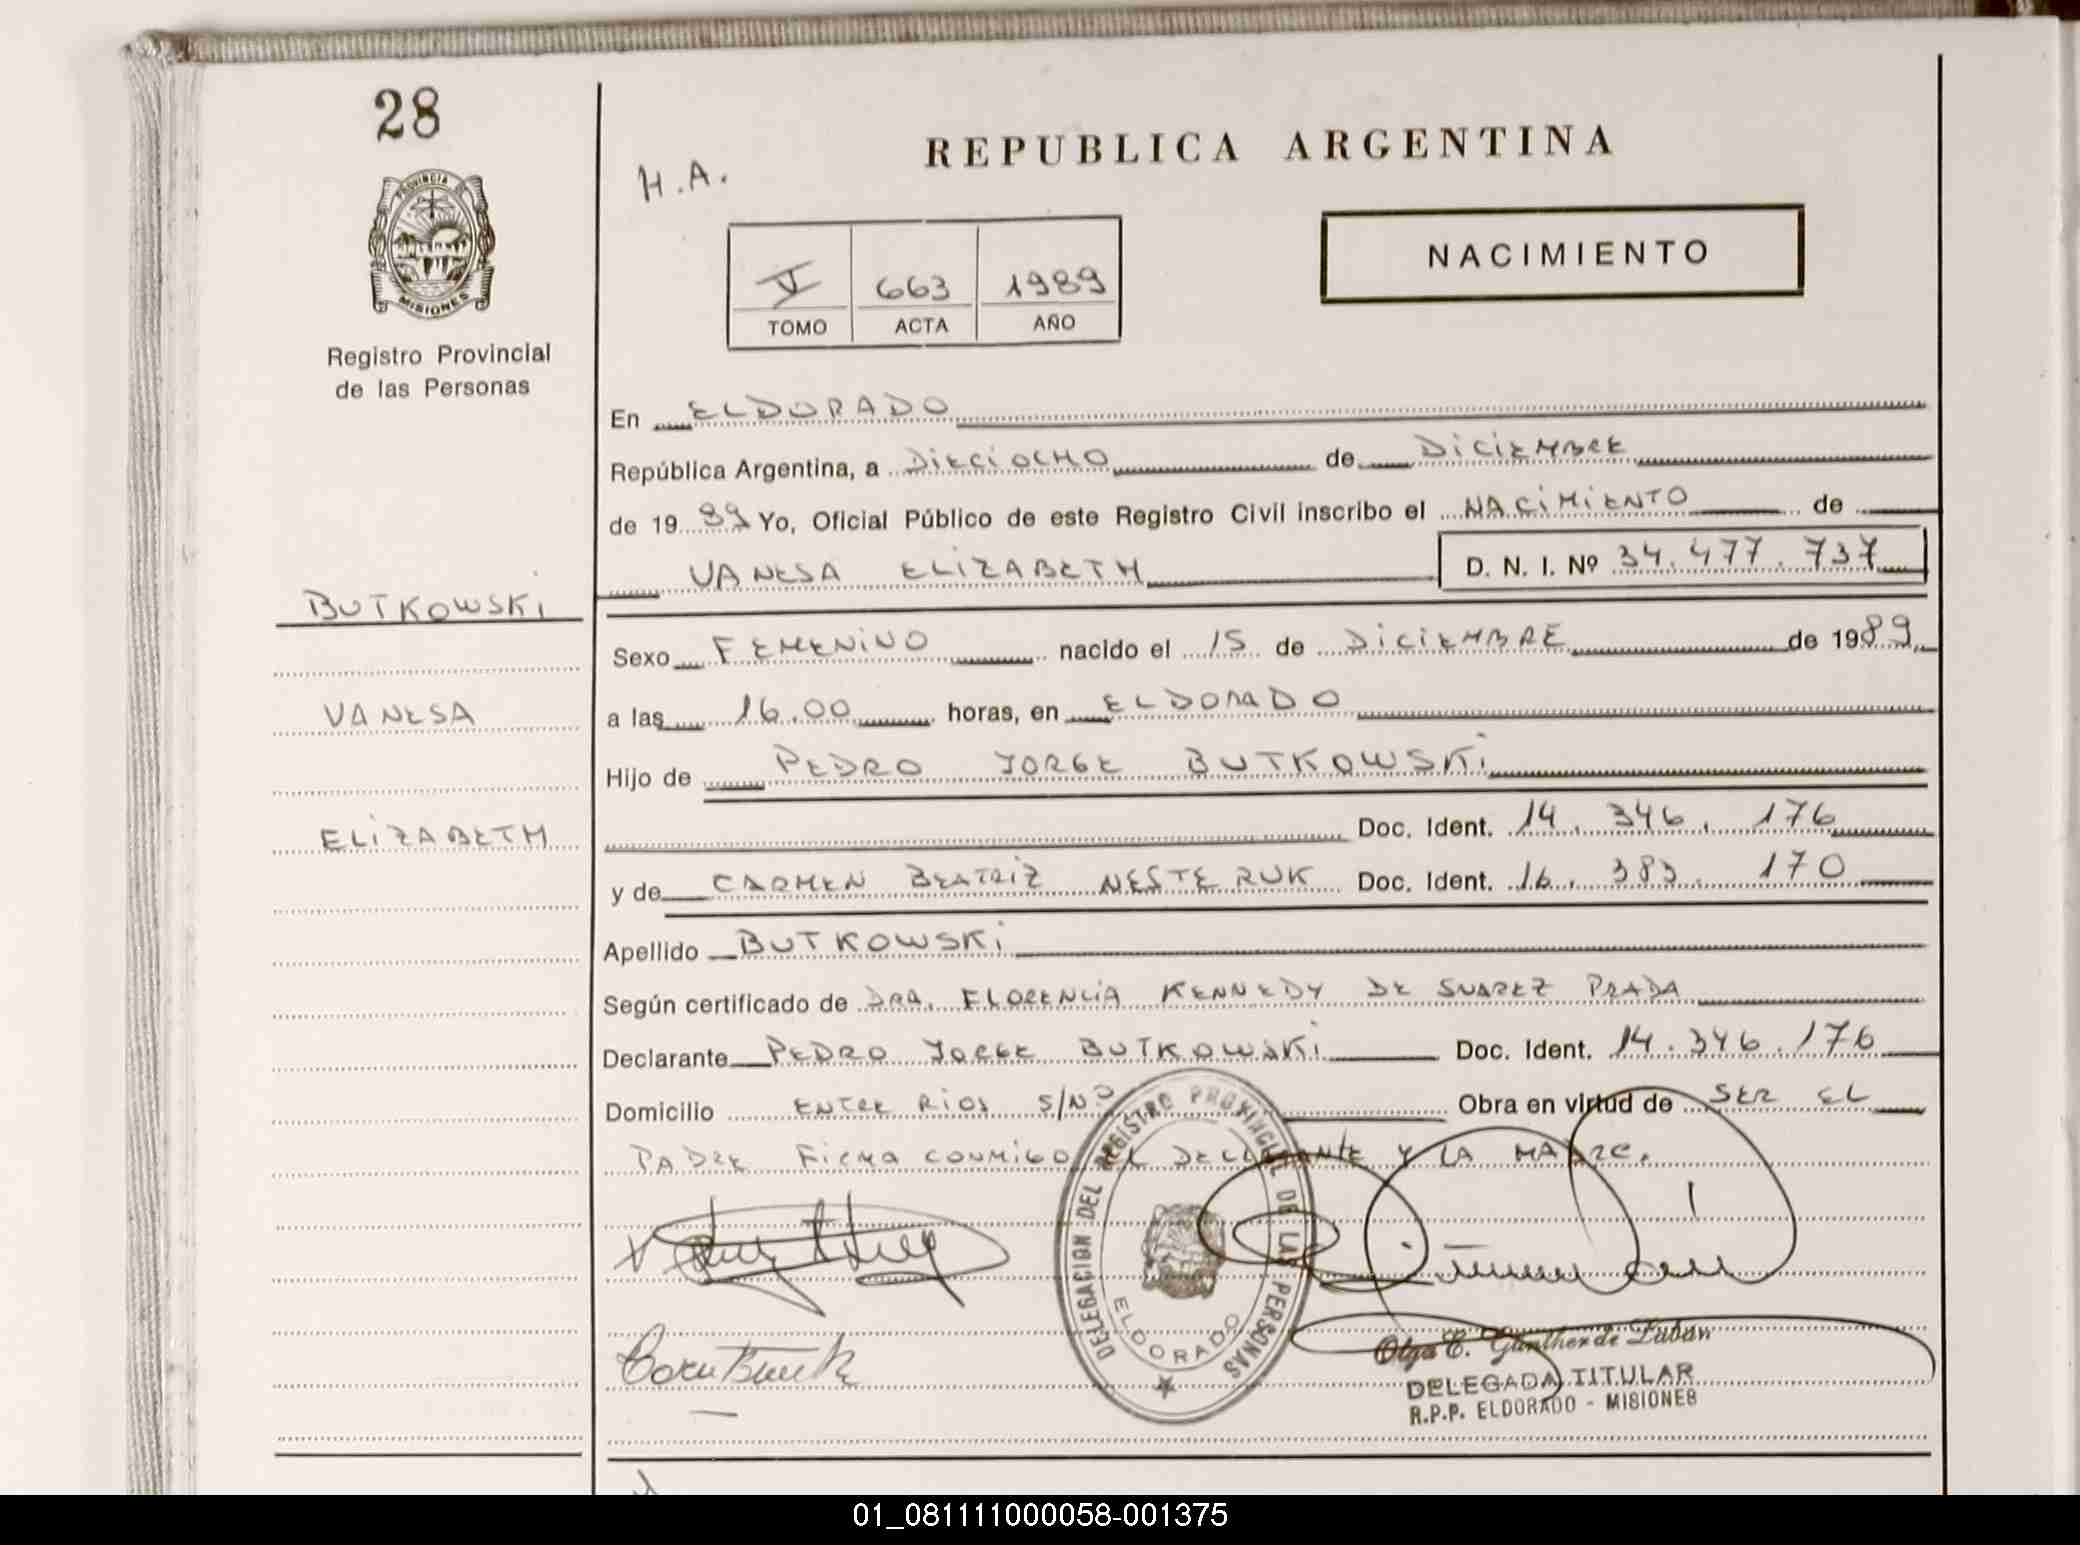 28
PROVINCIA DE
MISIONES
Registro Provincial
de las Personas
BUTKOWSKI
VANESA
ELIZABETH
REPUBLICA ARGENTINA
H.A.
NACIMIENTO
V 663 1989
TOMO ACTA AÑO
En ELDORADO
República Argentina, a DIECIOCHO de DICIEMBRE
de 19 89 Yo, Oficial Público de este Registro Civil inscribo el NACIMIENTO de
VANESA ELIZABETH D. N. I. Nº 34.477.737
Sexo FEMENINO nacido el 15 de DICIEMBRE de 1989
a las 16.00 horas, en ELDORADO
Hijo de PEDRO JORGE BUTKOWSKI
Doc. Ident. 14.346.176
y de CARMEN BEATRIZ NESTERUK Doc. Ident. 16.383.170
Apellido BUTKOWSKI
Según certificado de DRA. FLORENCIA KENNEDY DE SUAREZ PRADA
Declarante PEDRO JORGE BUTKOWSKI Doc. Ident. 14.346.176
Domicilio ENTRE RIOS S/Nº Obra en virtud de SER EL
PADRE FIRMA CONMIGO EL DECLARANTE Y LA MADRE.
DELEGACION DEL REGISTRO PROVINCIAL DE LAS PERSONAS
ELDORADO
Olga E. Günther de Zaban
DELEGADA TITULAR
R.P.P. ELDORADO - MISIONES
01_081111000058-001375